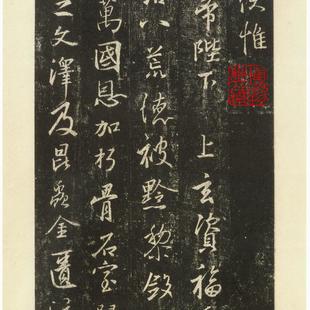 伏惟
帝陛下 上玄資福
治八荒德被黔黎斂
萬國恩加朽骨石室
之文澤及昆蟲金匱流